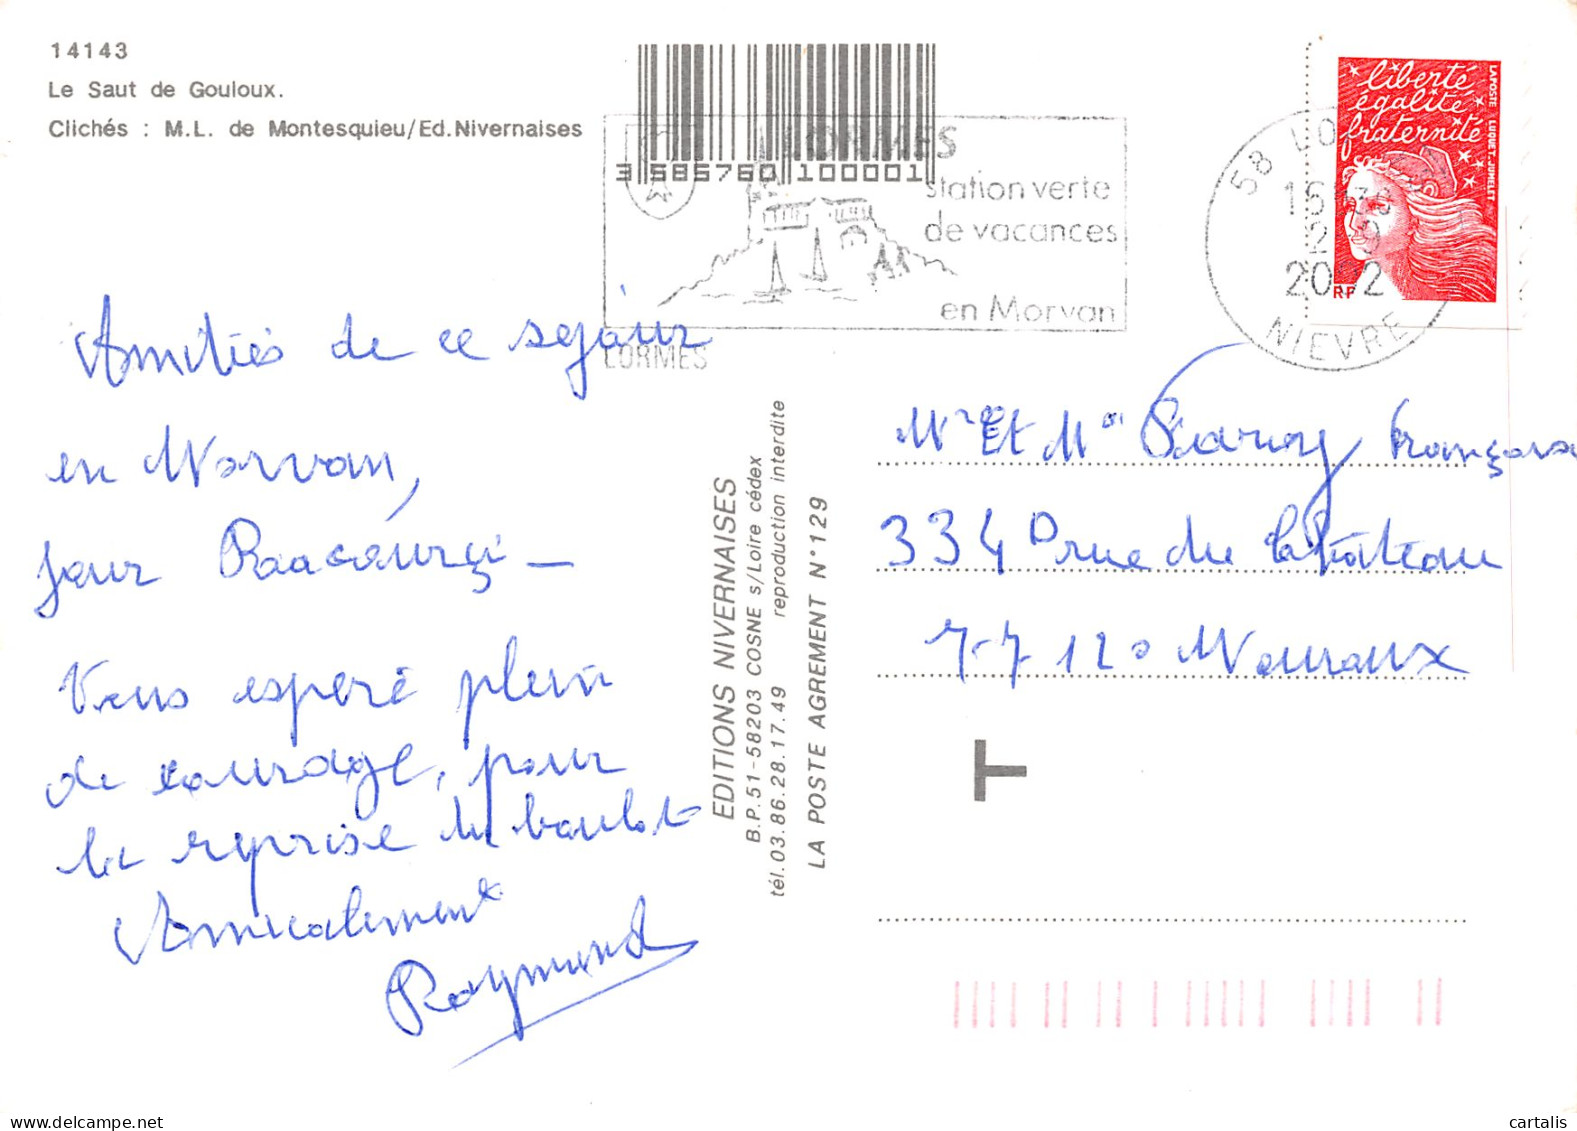 14143
Le Saut de Gouloux.
Clichés : M.L. de Montesquieu/Ed.Nivernaises
3 585760 100001
LORMES
station verte
de vacances
en Morvan
LORMES
58 LO
2002
NIEVRE
liberté
égalité
fraternité
LA POSTE LUQUET.JUMELET
RF
Amitiés de ce séjour
en Morvan,
Vous espère plein
de courage, pour
la reprise du boulot
Amicalement
Raymond
EDITIONS NIVERNAISES
B.P.51-58203 COSNE s/Loire cédex
tél.03.86.28.17.49 reproduction interdite
LA POSTE AGREMENT N°129
Mr Et Mme
334 rue du Château
77120 Mouroux
T
cartalis